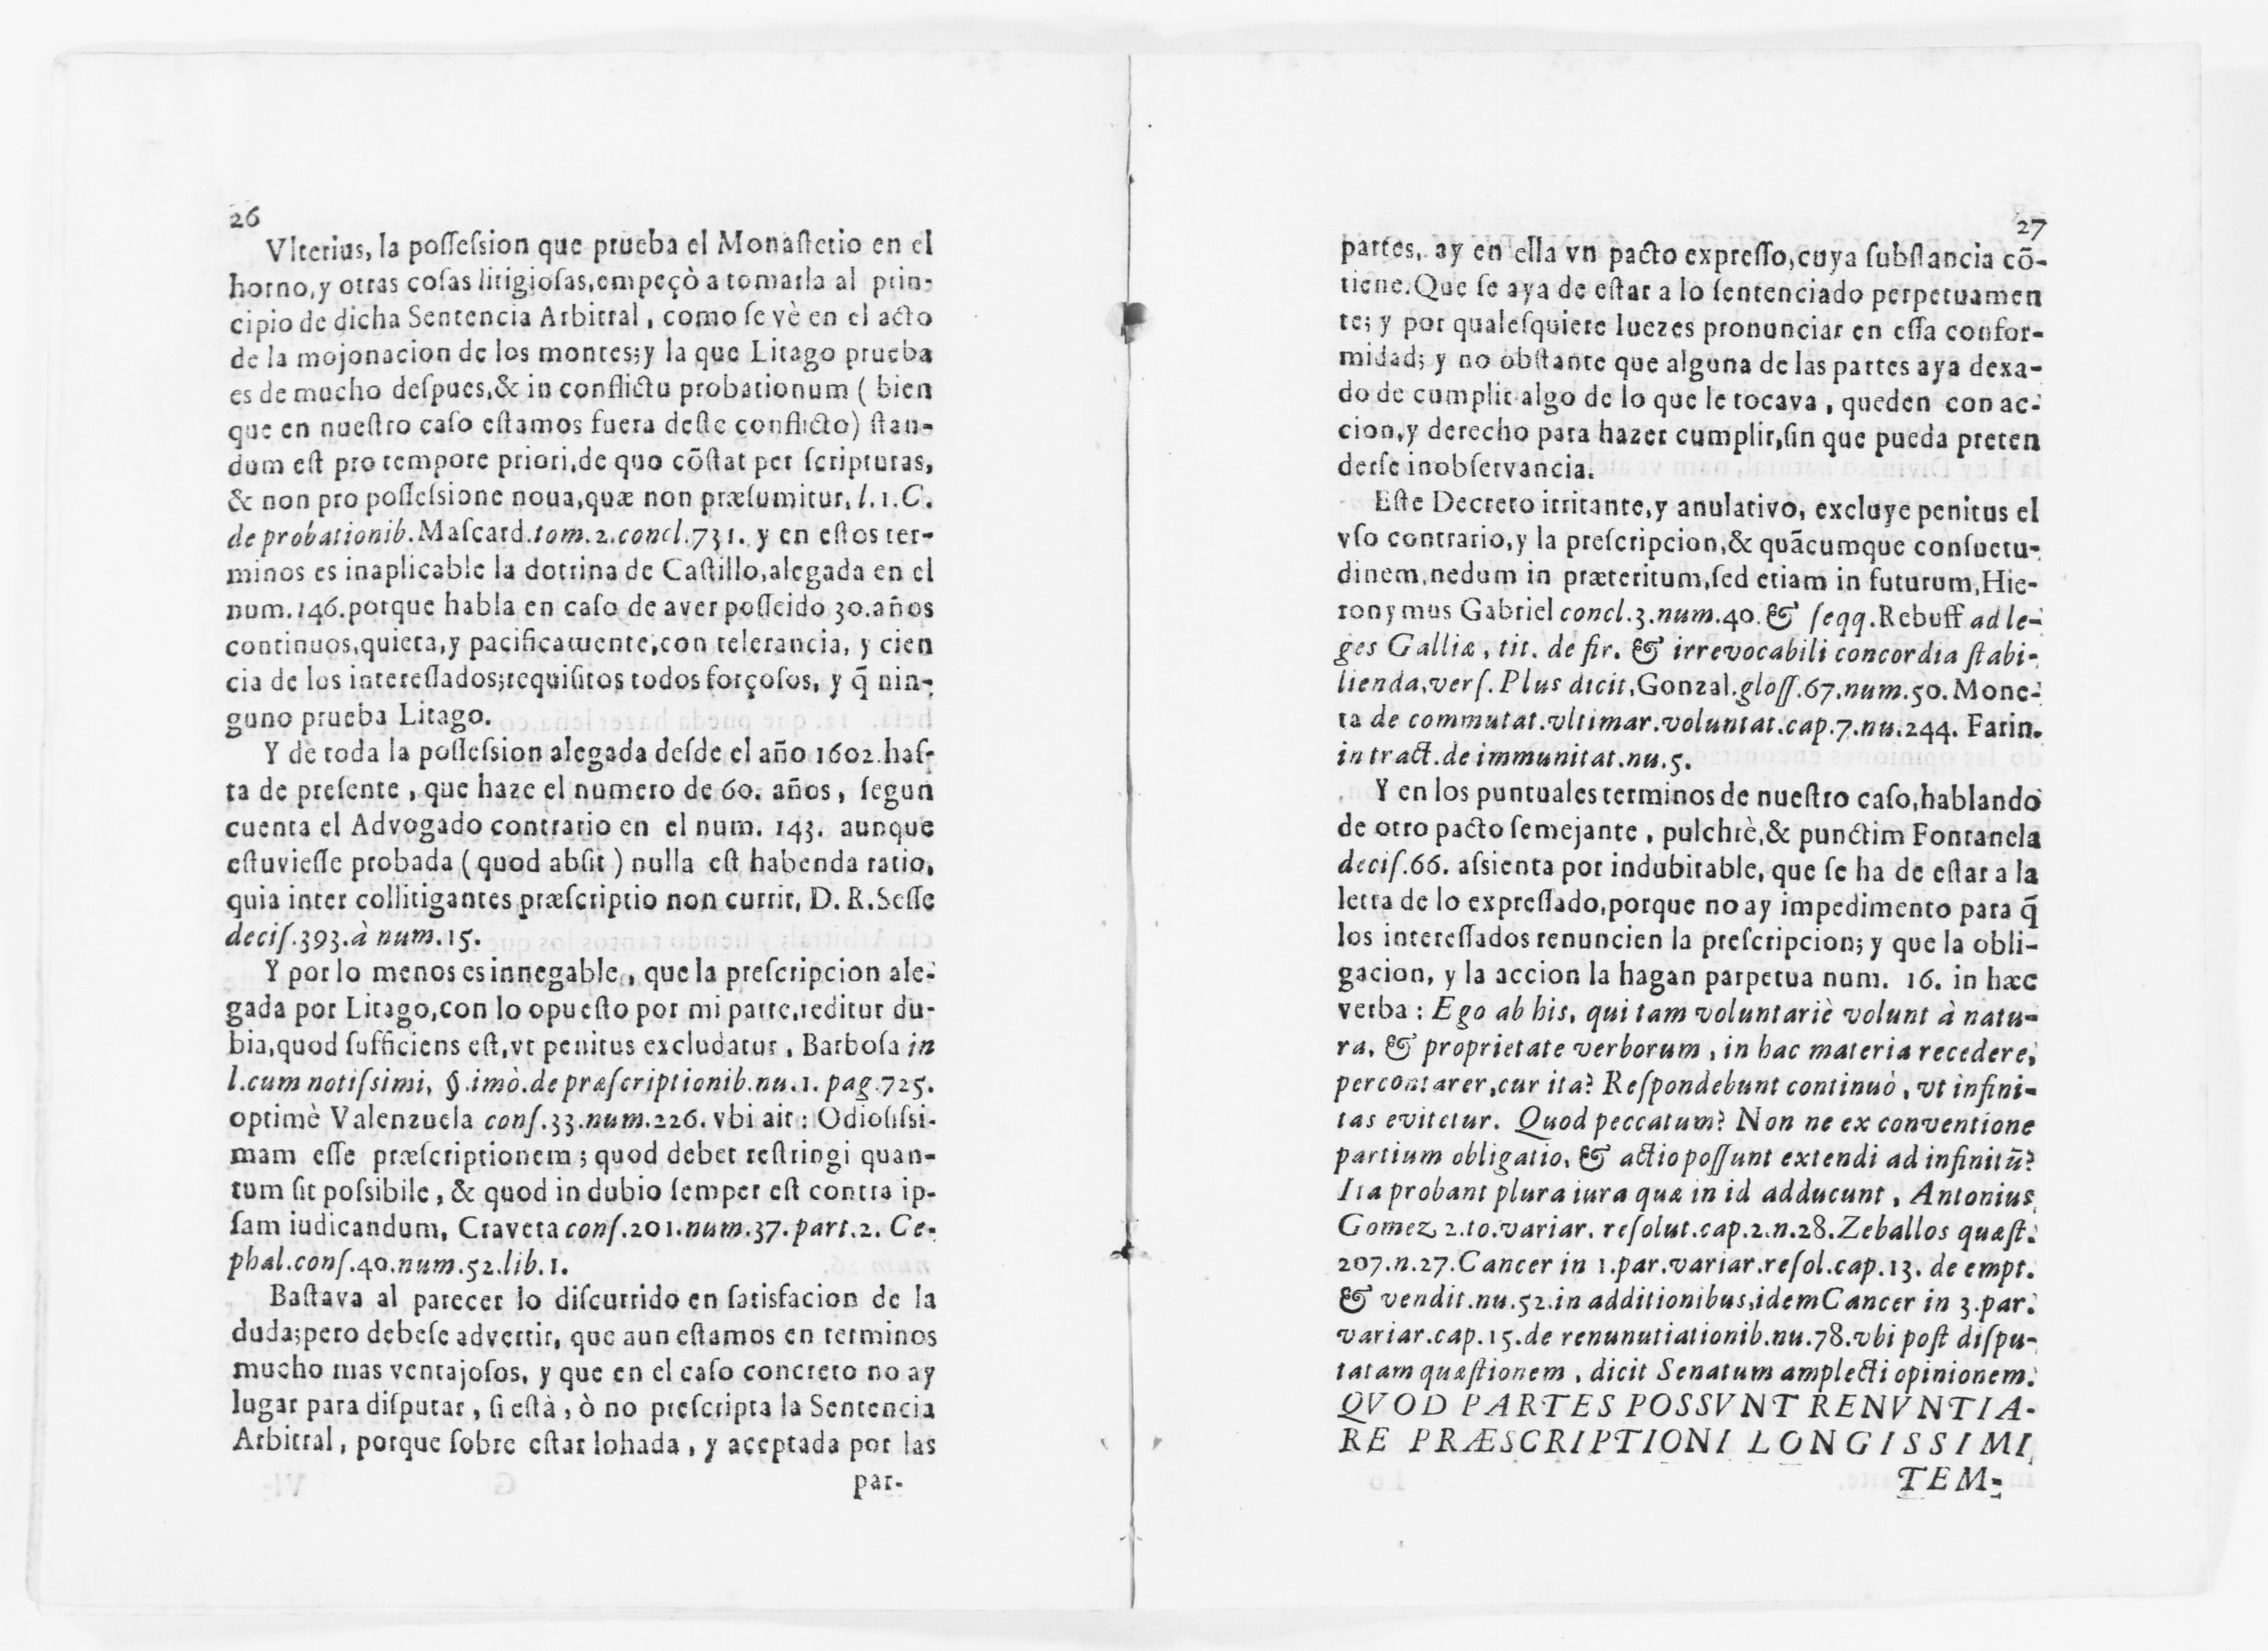 26
Vlterius, la possession que prueba el Monasterio en el
horno, y otras cosas litigiosas, empeçò a tomarla al prin-
cipio de dicha Sentencia Arbitral, como se vè en el acto
de la mojonacion de los montes; y la que Litago prueba
es de mucho despues, & in conflictu probationum ( bien
que en nuestro caso estamos fuera deste conflicto) stan-
dum est pro tempore priori, de quo cõstat per scripturas,
& non pro possessione noua, quæ non præsumitur, l.1.C.
de probationib. Mascard. tom.2.concl.731. y en estos ter-
minos es inaplicable la dotrina de Castillo, alegada en el
num.146. porque habla en caso de aver posseido 30. años
continuos, quieta, y pacificamente, con telerancia, y cien
cia de los interessados; requisitos todos forçosos, y q̃ nin-
guno prueba Litago.
Y de toda la possession alegada desde el año 1602. has-
ta de presente, que haze el numero de 60. años, segun
cuenta el Advogado contrario en el num. 143. aunque
estuviesse probada ( quod absit ) nulla est habenda ratio,
quia inter collitigantes præscriptio non currit, D. R. Sesse
decis.393. à num.15.
Y por lo menos es innegable, que la prescripcion ale-
gada por Litago, con lo opuesto por mi parte, reditur du-
bia, quod sufficiens est, vt penitus excludatur, Barbosa in
l.cum notissimi, §.imò.de præscriptionib.nu.1. pag.725.
optimè Valenzuela cons.33.num.226. vbi ait: Odiosissi-
mam esse præscriptionem; quod debet restringi quan-
tum sit possibile, & quod in dubio semper est contra ip-
sam iudicandum, Craveta cons.201.num.37.part.2. Ce-
phal.cons.40.num.52.lib.1.
Bastava al parecer lo discurrido en satisfacion de la
duda; pero debese advertir, que aun estamos en terminos
mucho mas ventajosos, y que en el caso concreto no ay
lugar para disputar, si està, ò no prescripta la Sentencia
Arbitral, porque sobre estar lohada, y aceptada por las
par-
27
partes, ay en ella vn pacto expresso, cuya substancia cõ-
tiene. Que se aya de estar a lo sentenciado perpetuamen
te; y por qualesquiere Iuezes pronunciar en essa confor-
midad; y no obstante que alguna de las partes aya dexa-
do de cumplir algo de lo que le tocava, queden con ac-
cion, y derecho para hazer cumplir, sin que pueda preten
derse inobservancia.
Este Decreto irritante, y anulativo, excluye penitus el
vso contrario, y la prescripcion, & quãcumque consuetu-
dinem, nedum in præteritum, sed etiam in futurum, Hie-
ronymus Gabriel concl.3.num.40. & seqq. Rebuff ad le-
ges Galliæ, tit. de fir. & irrevocabili concordia stabi-
lienda, vers. Plus dicit, Gonzal. gloss.67.num.50. Mone-
ta de commutat.vltimar.voluntat.cap.7.nu.244. Farin.
in tract.de immunitat.nu.5.
Y en los puntuales terminos de nuestro caso, hablando
de otro pacto semejante, pulchrè, & punctim Fontanela
decis.66. assienta por indubitable, que se ha de estar a la
letra de lo expressado, porque no ay impedimento para q̃
los interessados renuncien la prescripcion; y que la obli-
gacion, y la accion la hagan parpetua num. 16. in hæc
verba: Ego ab his, qui tam voluntariè volunt à natu-
ra, & proprietate verborum, in hac materia recedere,
percontarer, cur ita? Respondebunt continuò, vt infini-
tas evitetur. Quod peccatum? Non ne ex conventione
partium obligatio, & actio possunt extendi ad infinitũ?
Ita probant plura iura quæ in id adducunt, Antonius
Gomez 2.to.variar. resolut.cap.2.n.28. Zeballos quæst.
207.n.27. Cancer in 1.par.variar.resol.cap.13. de empt.
& vendit.nu.52.in additionibus, idem Cancer in 3.par.
variar.cap.15.de renunutiationib.nu.78.vbi post dispu-
tatam quæstionem, dicit Senatum amplecti opinionem.
QVOD PARTES POSSVNT RENVNTIA-
RE PRÆSCRIPTIONI LONGISSIMI
TEM-